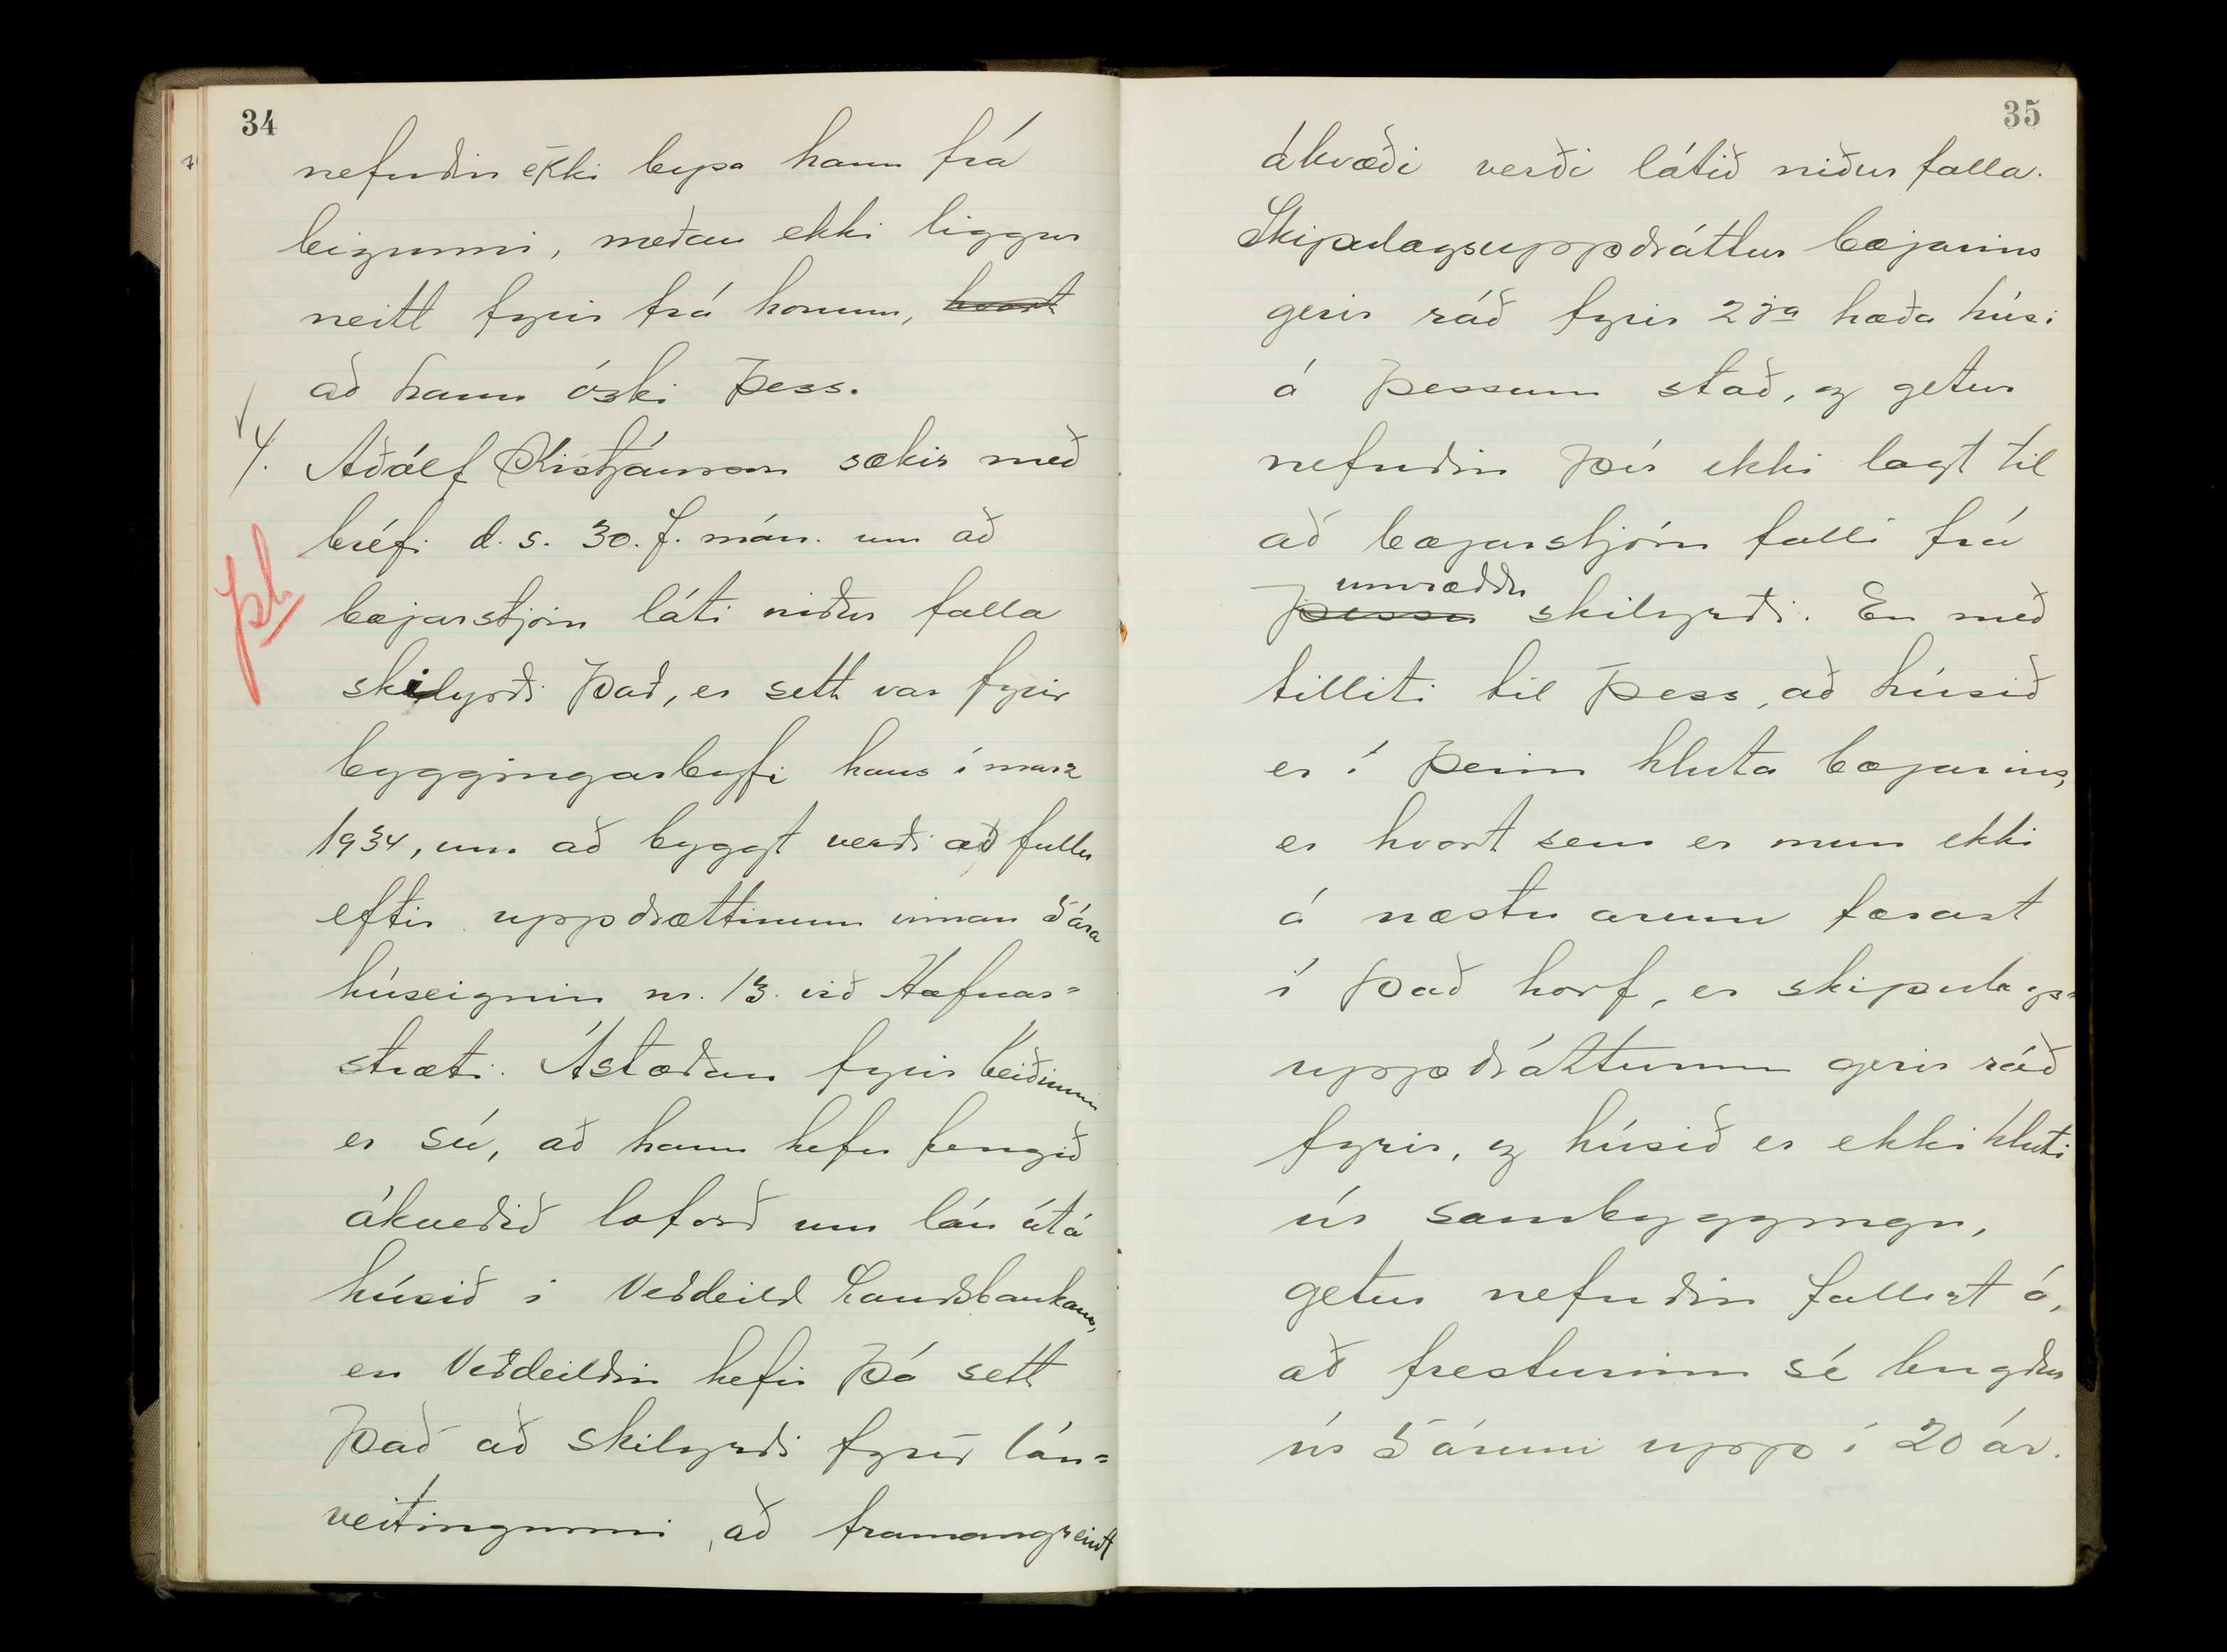 34
nefndin ekki leysa hann frá
leigunni, meðan ekki liggur
neitt fyrir frá honum, hvort
að hann óski þess.
4. Aðólf Kristjánsson sækir með
bréfi d. s. 30. f. mán. um að
bæjarstjórn láti niður falla
skilyrði það, er sett var fyrir
byggingarleyfi hans í marz
1934, um að byggt verði að fullu
eftir uppdrættinum innan 5 ára
húseignin nr. 13. við Hafnar=
stræti. Ástæðan fyrir beiðninni
er sú, að hann hefur fengið
ákveðið loforð um lán útá
húsið í Veðdeild Landsbankans,
en Veðdeildin hefir þó sett
það að skilyrði fyrir lán=
veitingunni, að framangreint
35
ákvæði verði látið niður falla.
Skipulagsuppdráttur bæjarins
gerir ráð fyrir 2ja hæða húsi
á þessum stað, og getur
nefndin því ekki lagt til
að bæjarstjórn falli frá
umræddu
þessu skilyrði. En með
tilliti til þess, að húsið
er í þeim hluta bæjarins,
er hvort sem er mun ekki
á næstu árum færast
í það horf, er skipulags=
uppdrátturinn gerir ráð
fyrir, og húsið er ekki hluti
úr sambyggingu,
getur nefndin fallist á,
að fresturinn sé lengdur
úr 5 árum upp í 20 ár.